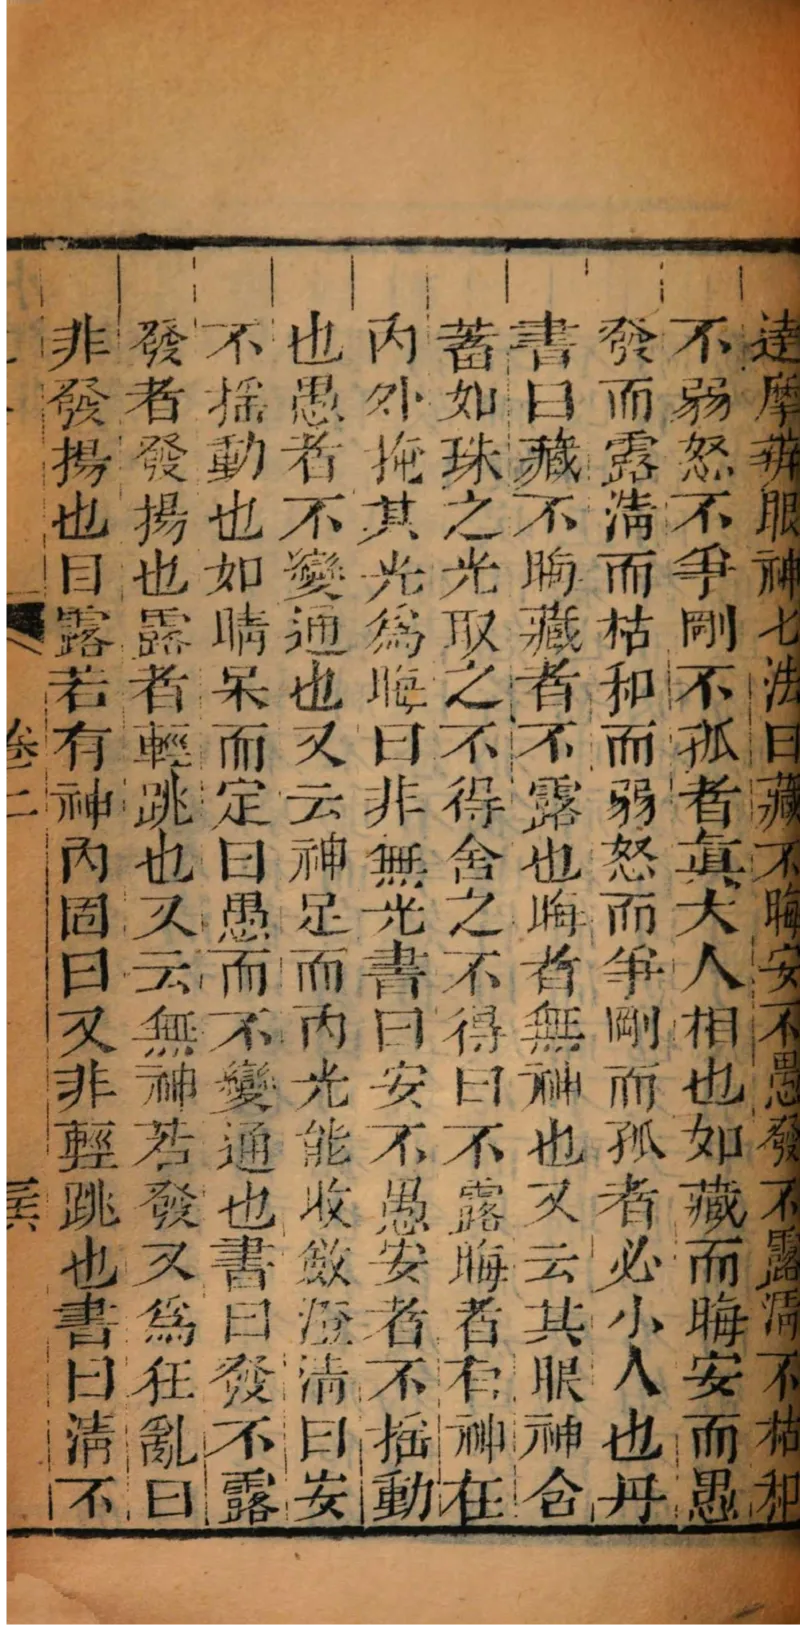 達摩辨眼神七法曰藏不晦安不愚發不露清不枯和
不弱怒不爭剛不孤者眞大人相也如藏而晦安而愚
發而露清而枯和而弱怒而爭剛而孤者必小人也丹
書曰藏不晦藏者不露也晦者無神也又云其眼神含
蓄如珠之光取之不得舍之不得曰不露晦者有神在
內外掩其光爲晦曰非無光書曰安不愚安者不揺動
也愚者不變通也又云神足而內光能收斂澄清曰安
不揺動也如睛呆而定曰愚而不變通也書曰發不露
發者發揚也露者輕跳也又云無神若發又爲狂亂曰
非發揚也目露若有神內固曰又非輕跳也書曰清不
卷二